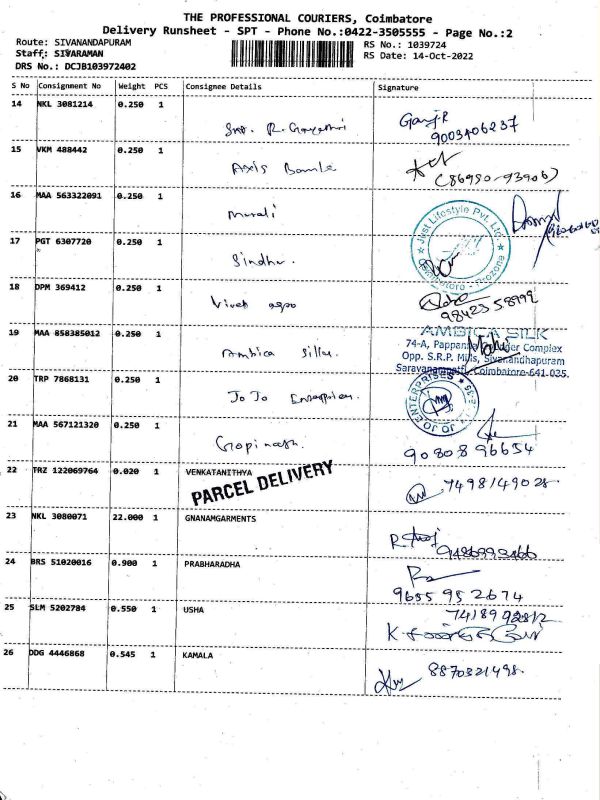 THE PROFESSIONAL COURIERS, Coimbatore
Delivery Runsheet - SPT - Phone No.:0422-3505555 - Page No.:2
Route: SIVANANDAPURAM
RS No.: 1039724
Staff: SIVARAMAN
RS Date: 14-Oct-2022
DRS No.: DCJB103972402
S No Consignment No Weight PCS Consignee Details Signature
14 NKL 3081214 0.250 1
R. Gayathri
9003406237
15 VKM 488442 0.250 1
Axis Bank
(86980-93906)
16 MAA 563322091 0.250 1
Murali
Just Lifestyle Pvt. Ltd.
Coimbatore - Prozone
17 PGT 6307720 0.250 1
Sindhu.
18 DPM 369412 0.250 1
Vivek
9842358999
19 MAA 858385012 0.250 1
Ambica Silks.
AMBICA SILK
74-A, Complex
Opp. S.R.P. Mills, Sivanandhapuram
Coimbatore-641-035.
20 TRP 7868131 0.250 1
JoJo Enterprises
JO JO ENTERPRISES
21 MAA 567121320 0.250 1
Gopinath.
9080896654
22 TRZ 122069764 0.020 1 VENKATANITHYA
PARCEL DELIVERY
7498149028
23 NKL 3080071 22.000 1 GNANAMGARMENTS
24 BRS 51020016 0.900 1 PRABHARADHA
9655952674
25 SLM 5202784 0.550 1 USHA
26 DDG 4446868 0.545 1 KAMALA
8870321498